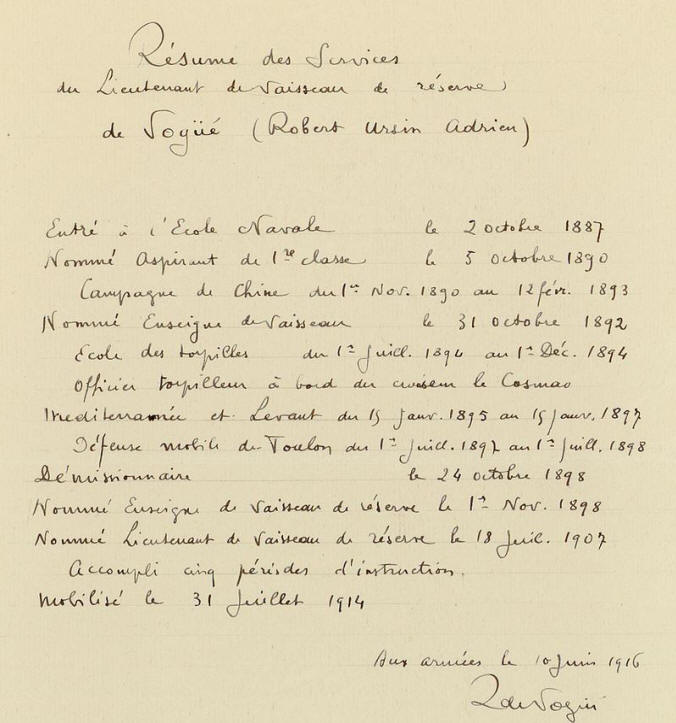 Résumé des Services
du Lieutenant de Vaisseau de réserve
de Vogüé (Robert Ursin Adrien)
Entré à l'Ecole Navale le 2 octobre 1887
Nommé Aspirant de 1re classe le 5 octobre 1890
Campagne de Chine du 1er Nov. 1890 au 12 févr. 1893
Nommé Enseigne de Vaisseau le 31 octobre 1892
Ecole des torpilles du 1er Juill. 1894 au 1er Déc. 1894
Officier torpilleur à bord du croiseur le Cosmao
Mediterrannée et Levant du 15 Janv. 1895 au 15 Janv. 1897
Défense mobile de Toulon du 1er Juill. 1897 au 1er Juill. 1898
Démissionnaire le 24 octobre 1898
Nommé Enseigne de Vaisseau de réserve le 1er Nov. 1898
Nommé Lieutenant de Vaisseau de réserve le 18 Juil. 1907
Accompli cinq périodes d'instruction.
Mobilisé le 31 Juillet 1914
Aux armées le 10 Juin 1916
R de Vogüé